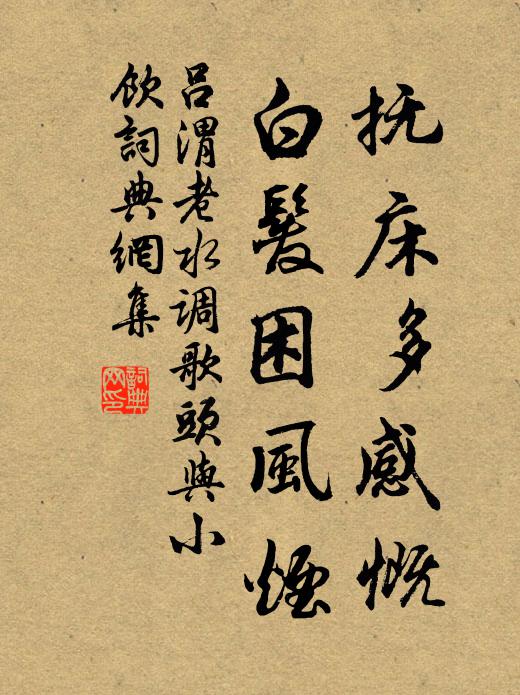 抚床多感慨
白髮困風煙
吕渭老水调歌頭與小
飲詞典網集
詞典网印